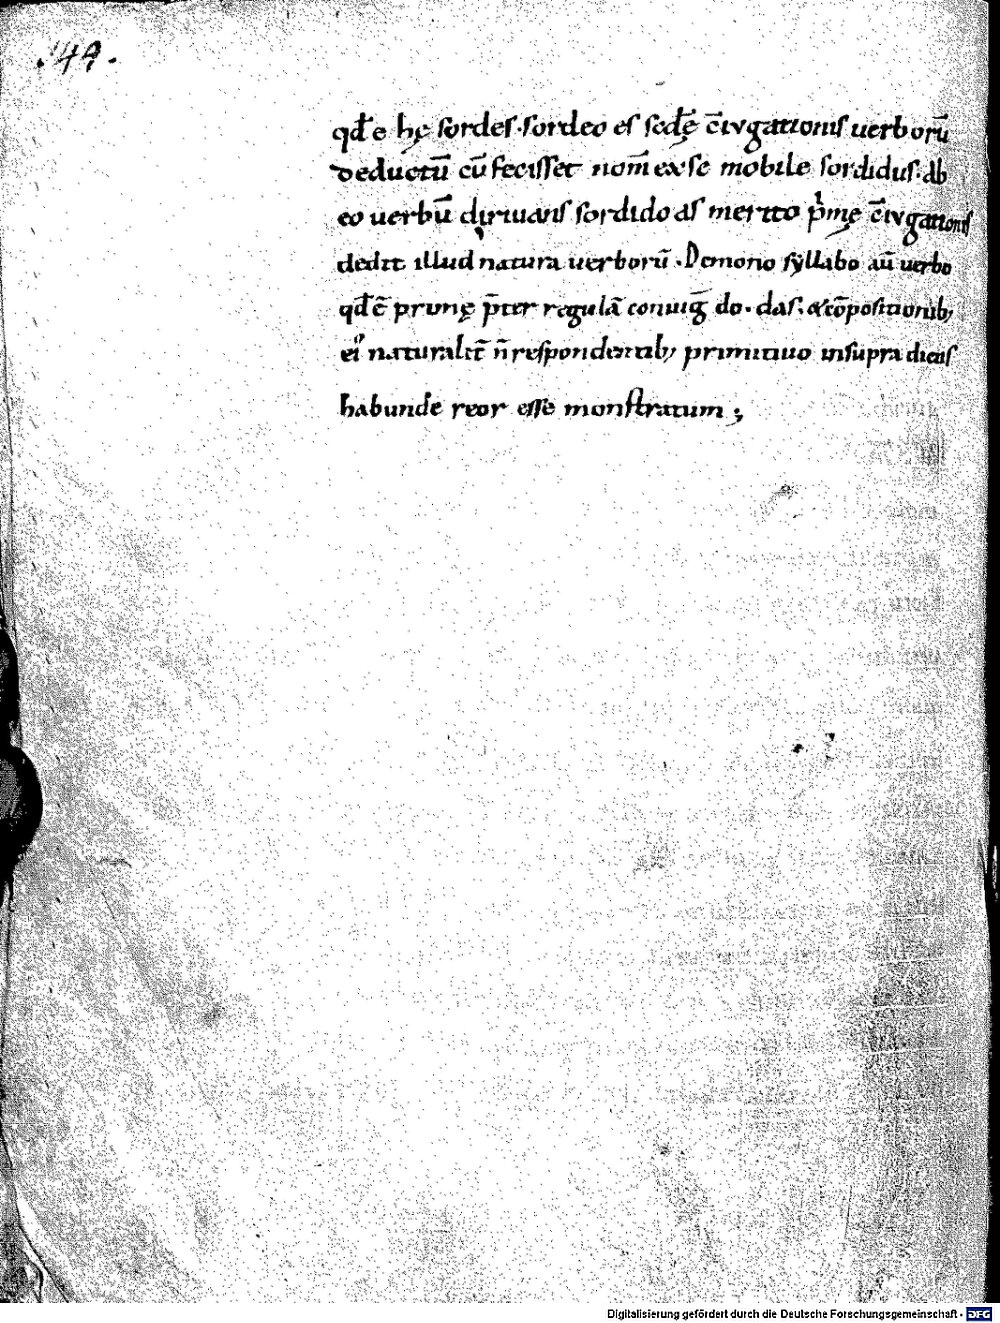 .149.
qđ e hę sordes. sordeo es sedę c̄iugationis uerborū
deductū cū fecisset nom̄ ex se mobile sordidus. ab
eo uerbū diriuans sordido as merito p̄mę c̄iugationis
dedit illud natura uerborū. De mono syllabo aū uerbo
qđ ē primę p̄ter regulā coniuḡ do. das. & cōpositionib;
ei naturalit̄ n̄ respondentib; primitiuo in supra dictis
habunde reor esse monstratum;
Digitalisierung gefördert durch die Deutsche Forschungsgemeinschaft - DFG